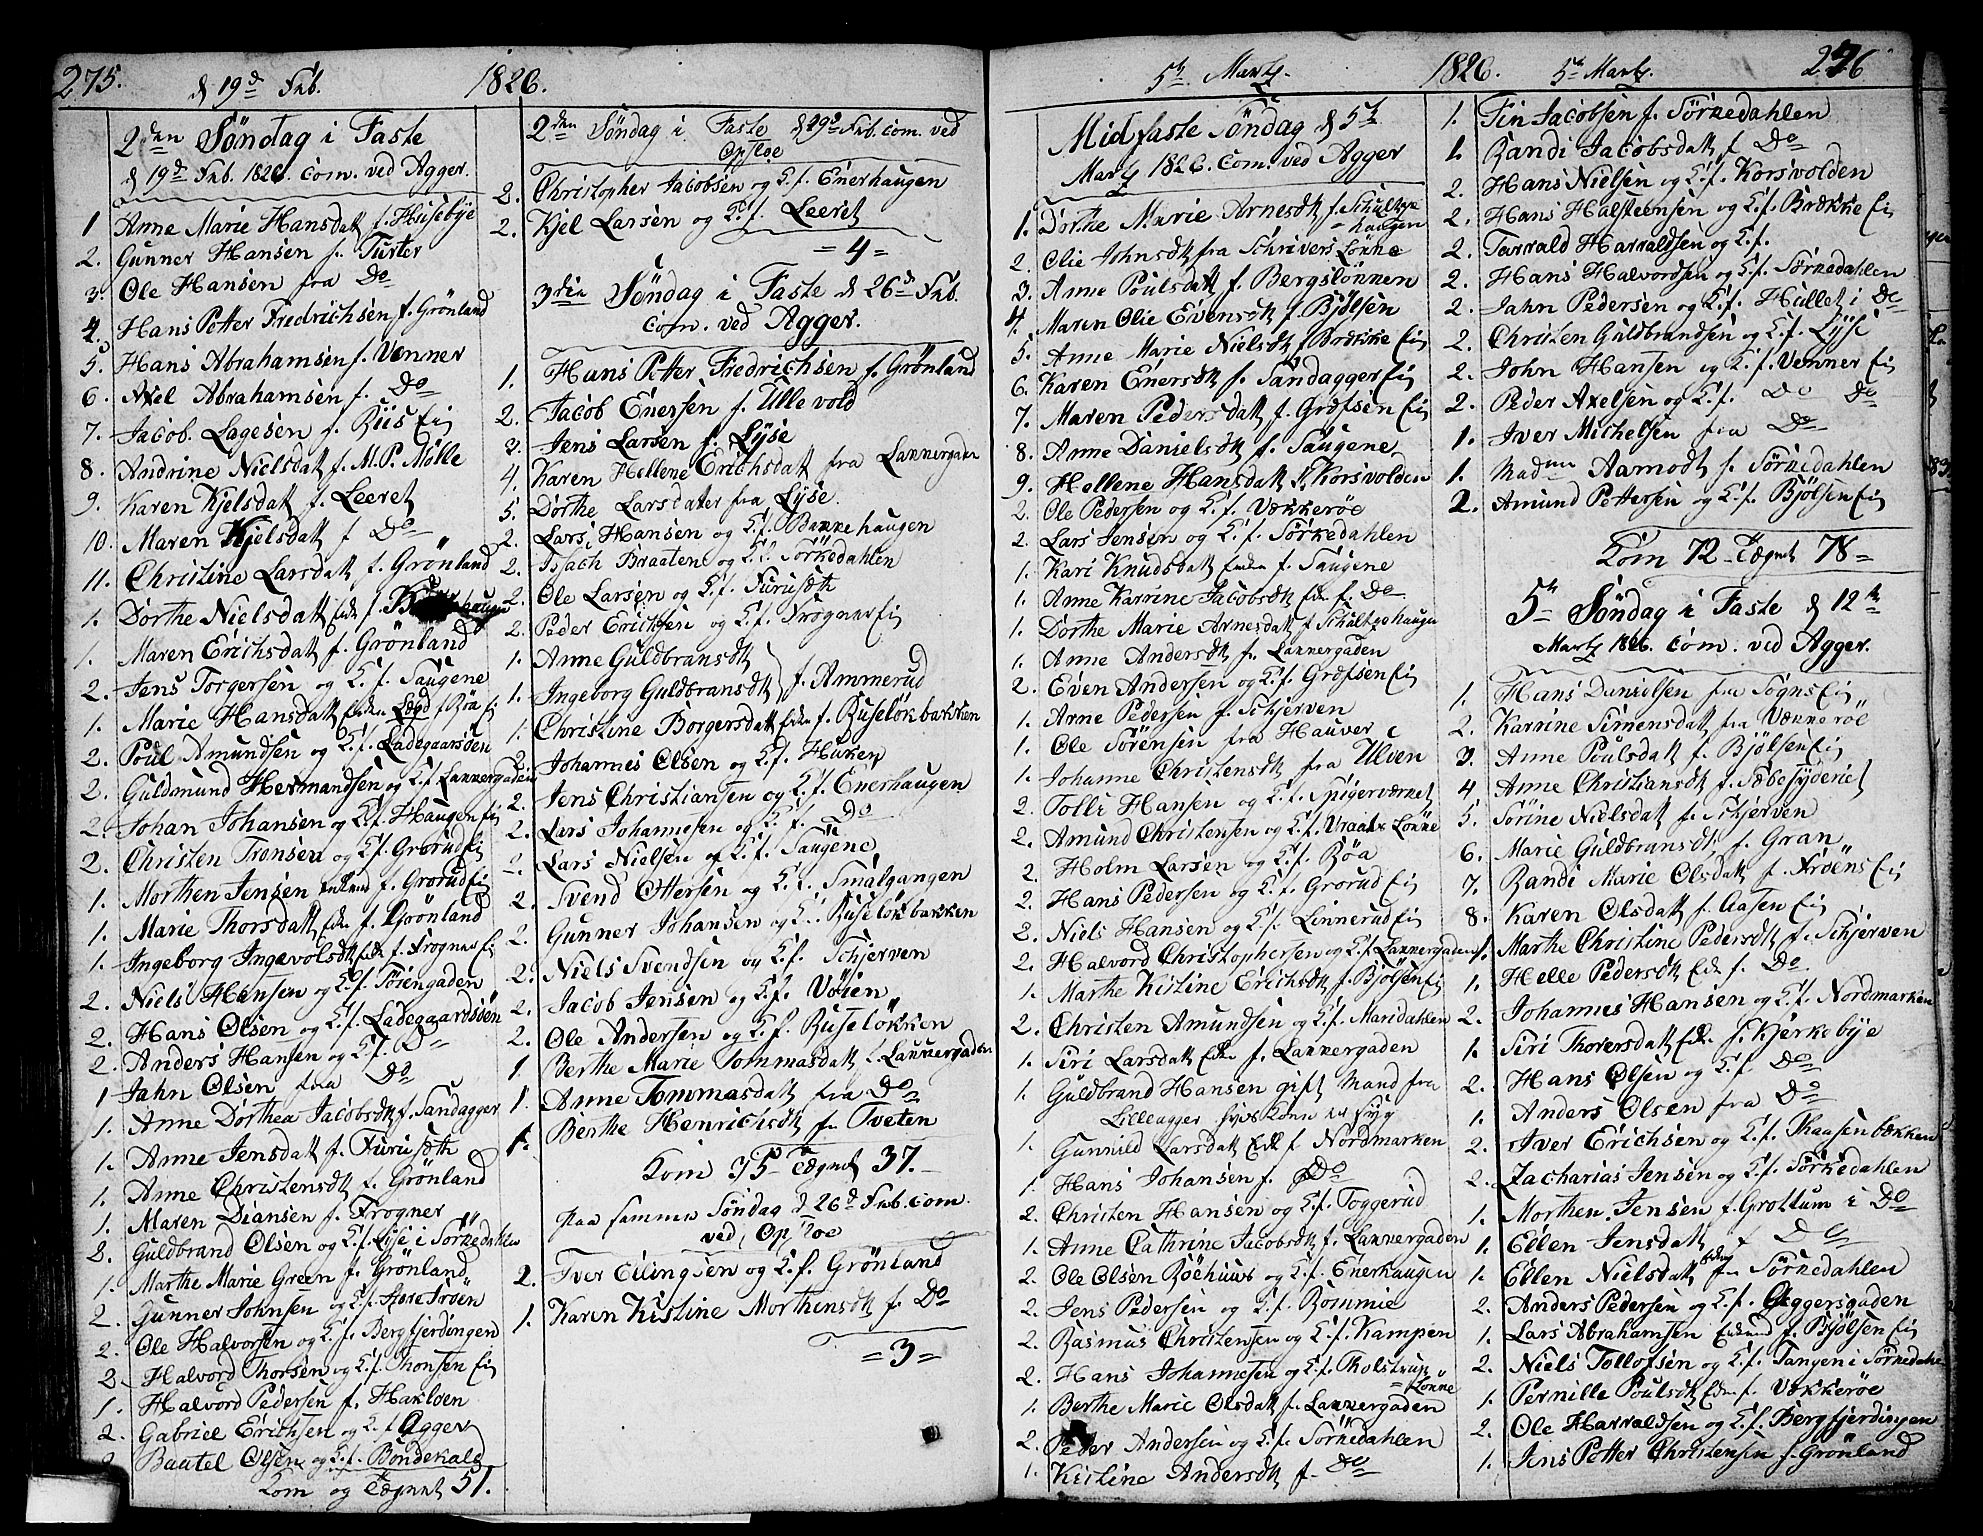 275.
d 19d Feb.
1826.
2den Søndag i Faste
d 19d Feb. 1826. Com. ved Agger.
1 Anne Marie Hansdatt f. Husebye
2. Gunner Hansen f. Turter
3. Ole Hansen fra Do
4. Hans Petter Fredrichsen f. Grönland
5. Hans Abrahamsen f. Venner
6. Axel Abrahamsen f. Do
7. Jacob Lagesen f. Riis Ei
8. Andrine Nielsdatt f. M. P. Mølle
9. Karen Kjelsdatt f. Leeret
10. Maren Kjelsdatt f Do
11. Christine Larsdatt f. Grönland
1. Dorthe Nielsdatt
1. Maren Erichsdatt f. Grönland
2. Jens Torgersen og K. f. Taugene
1. Marie Hansdatt
2. Poul Amundsen og K. f. Ladegaarsöen
2. Guldmund Hermandsen og K. f. Lakkergaden
2. Johan Johansen og K. f. Haugen Ei
2. Christen Tronsen og K. f. Grorud Ei
1. Morthen Jensen Enkmd f. Grorud Ei
1. Marie Thorsdatt Enke f. Grönland
1. Ingeborg Ingevolsdt Enke f. Frogner Ei
2. Niels Hansen og K. f. Töiengaden
2. Hans Olsen og K. f. Ladegaardsöen
2. Anders Hansen og K. f. Do
1 Jahn Olsen fra Do
1. Anne Dorthea Jacobsdt f. Sandagger
1. Anne Jensdatt f. Furusæth
1. Anne Christensdt f. Grönland
1. Maren Diansen f. Frogner
2. Guldbrand Olsen og K. f. Lyse i Sörkedahlen
1. Marthe Marie Green f. Grönland
2. Gunner Johnsen og K. f. Store Fröen
2. Ole Halvorsen og K. f. Bergfjerdingen
2. Halvord Thorsen og K. f. Thonsen Ei
1. Halvord Pedersen f. Hakloen
2. Gabriel Erichsen og K. f Agger
2. Bautel Olsen og K. f. Bondekald
Kom og Tægnet 51.
2den Søndag i Faste d 19d Feb. com. ved
Opsloe
2. Christopher Jacobsen og K. f. Enerhaugen
2. Kjel Larsen og K. f. Leeret
= 4 =
3die Søndag i Faste d 26d Feb.
Com. ved Agger.
1. Hans Petter Fredrichsen f. Grönland
2. Jacob Enersen f. Ullevold
3. Jens Larsen f. Lyse
4. Karen Hellene Erichsdatt fra Lakkergaden
5. Dorthe Larsdater fra Lyse
2. Lars Hansen og K. f. Bakkehaugen
2. Issach Braaten og K. f. Sörkedahlen
2. Ole Larsen og K. f. Furusæth
2. Peder Erichsen og K. f. Frogner Ei
1. Anne Guldbransdt
1. Ingeborg Guldbransdt } f. Ammerud
1. Christine Borgersdatt Enke f. Ruseløkbakken
2. Johannes Olsen og K. f. Huken
2. Jens Christiansen og K. f. Enerhaugen
2. Lars Johannesen og K. f. Do
2. Lars Nielsen og K. f. Taugene
2. Svend Ottersen og K. f. Smalgangen
2. Gunner Johansen og K. f. Ruseløkbakken
2. Niels Svendsen og K. f. Schjerven
2. Jacob Jensen og K. f. Vöien
2. Ole Andersen og K. f. Ruseløkken
1. Berthe Marie Tommasdatt f. Lakkergaden
1. Anne Tommasdatt fra Do
1. Berthe Henrichsdt fr Tveten
Kom 35 Tægnet 37.
paa samme Søndag d 26d Feb. com
ved Opsloe
2. Iver Ellingsen og K. f. Grönland
1. Karen Kistine Morthensdt f. Do
= 3 =
5te Martz.
1826.
5te Martz.
276
Midfaste Søndag d 5te
Martz 1826. Com. ved Agger
1. Dorthe Marie Arnesdt f. Schultze
= haugen
2. Olie Johnsdt fra Schrivers Lökke
3. Anne Poulsdatt f. Bergslönnen
4. Maren Olie Evensdt f. Bjölsen
5. Anne Marie Nielsdt f. Brække Ei
6. Karen Enersdt f. Sandagger Ei
7. Maren Pedersdatt f. Grefsen Ei
8. Anne Danielsdt f. Taugene
9. Hellene Hansdatt f. Korsvolden
2. Ole Pedersen og K. f. Vækkeröe
2. Lars Jensen og K. f. Sörkedahlen
1. Kari Knudsdatt Enke f. Taugene
1. Anne Karrine Jacobsdt Enke f. Do
1. Dorthe Marie Arnesdatt f Schultzehaugen
1. Anne Andersdt f. Lakkergaden
2. Even Andersen og K. f. Grefsen Ei
1. Arne Pedersen f. Schjerven
1. Ole Sörensen fra Hauver
1. Johanne Christensdt fra Ulven
2. Tolli Hansen og K. f. Spigerværket
2. Amund Christensen og K. f. Vraals Lökke
2. Holm Larsen og K. f. Röa
2. Hans Pedersen og K. f. Grorud Ei
2. Niels Hansen og K. f. Linnerud Ei
2. Halvord Christophersen og K. f. Lakkergaden
1. Marthe Kistine Erichsdt f. Bjölsen Ei
2. Christen Amundsen og K. f. Maridahlen
1. Siri Larsdatt Enke f. Lakkergaden
1. Guldbrand Hansen gift Mand fra
Lilleagger hvis Kone er syg
1. Gunnild Larsdatt Enke f. Nordmarken
1. Hans Johansen f. Do
2. Christen Hansen og K. f. Toggerud
1. Anne Cathrine Jacobsdt f. Lakkergaden
2. Ole Olsen Röehuus og K. f. Enerhaugen
2. Jens Pedersen og K. f. Rommie
2. Rasmus Christensen og K. f. Kampen
2. Hans Johannesen og K. f. Tholstrup
= Lökke
1. Berthe Marie Olsdatt f. Lakkergaden
2. Peder Andersen og K. f. Sörkedahlen
1. Kistine Andersdt f. Do
1. Fin Jacobsen f. Sörkedahlen
1. Randi Jacobsdatt f Do
2. Hans Nielsen og K. f. Korsvolden
2. Hans Halsteensen og K. f. Brække Ei
2. Tarrald Harraldsen og K. f.
2. Hans Halvordsen og K. f. Sörkedahlen
2. Jahn Pedersen og K. f. Hullet i Do
2. Christen Guldbrandsen og K. f. Lysse
2. John Hansen og K. f. Venner Ei
2. Peder Axelsen og K. f. Do Do
1. Iver Michelsen fra Do
1. Madme Aamodt f. Sörkedahlen
2. Amund Pettersen og K. f. Bjölsen Ei
Kom 72 Tægnet 78 =
5te Søndag i Faste d 12te
Martz 1826. Com. ved Agger.
1. Hans Danielsen fra Sogns Ei
2. Karrine Simensdatt fra Vækkeröe
3. Anne Poulsdatt f. Bjölsen Ei
4 Anne Christiansdt f. Sæbesyderiet
5. Sörine Nielsdatt f. Schjerven
6. Marie Guldbransdt f. Gran
7. Randi Marie Olsdatt f. Fröens Ei
8. Karen Olsdatt f. Aasen Ei
1. Marthe Christine Pedersdt f. Schjerven
1. Helle Pedersdt Enke f. Do
2. Johannes Hansen og K. f. Nordmarken
1. Siri Thoversdatt Enke f. Kjerkebye
2. Hans Olsen og K. f. Do
1. Anders Olsen fra Do
2. Iver Erichsen og K. f. Thaasenbækken
2. Zacharias Jensen og K. f. Sörkedahlen
1. Morthen Jensen f. Grottum i Do
1. Ellen Jensdatt f Do
1. Ellen Nielsdatt Enke f. Sörkedahlen
2. Anders Pedersen og K. f. Geggersgaden
1. Lars Abrahamsen Enkmd f. Bjölsen Ei
2. Niels Tollofsen og K. f. Tangen i Sörkedahlen
1. Pernille Poulsdt Enke f. Vækkeröe
2. Ole Harraldsen og K. f. Bergfjerdingen
1. Jens Petter Christensen f. Grönland